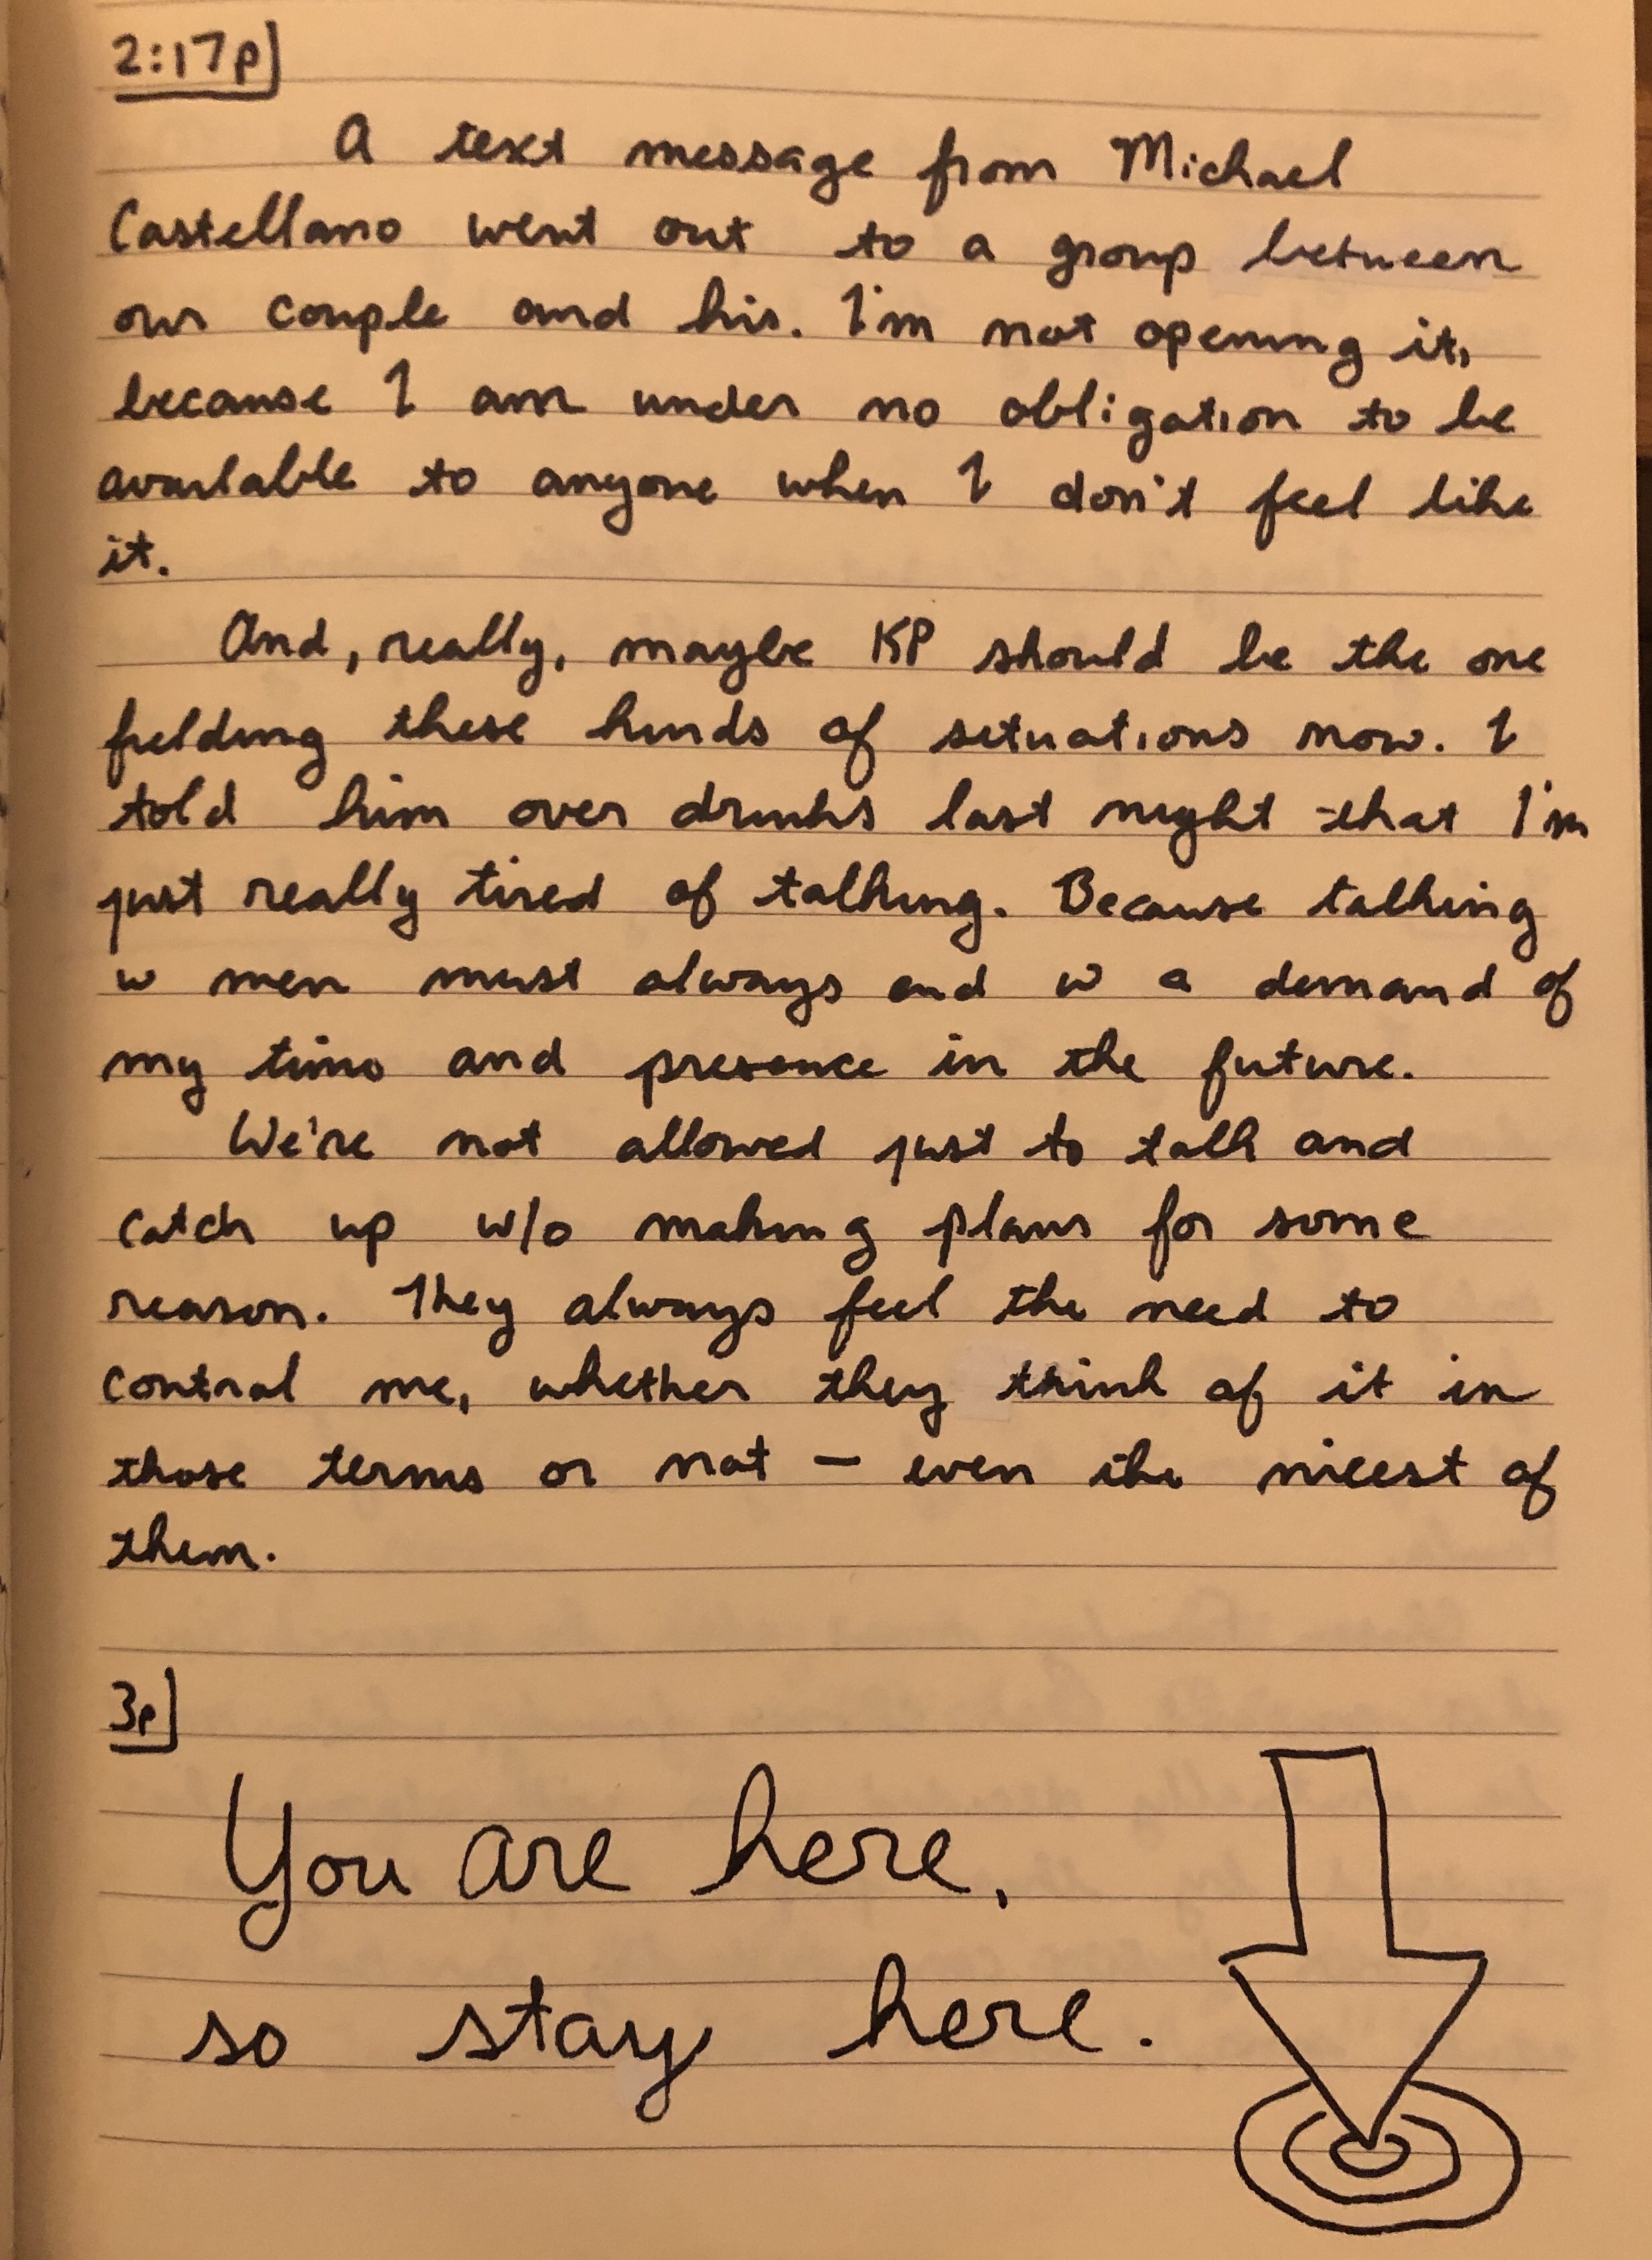 2:17p
A text message from Michael
Castellano went out to a group between
our couple and his. I'm not opening it,
because I am under no obligation to be
available to anyone when I don't feel like
it.
And, really, maybe KP should be the one
fielding these kinds of situations now. I
told him over drinks last night that I'm
just really tired of talking. Because talking
w men must always end w a demand of
my time and presence in the future.
We're not allowed just to talk and
catch up w/o making plans for some
reason. They always feel the need to
control me, whether they think of it in
those terms or not – even the nicest of
them.
3p
You are here,
so stay here.